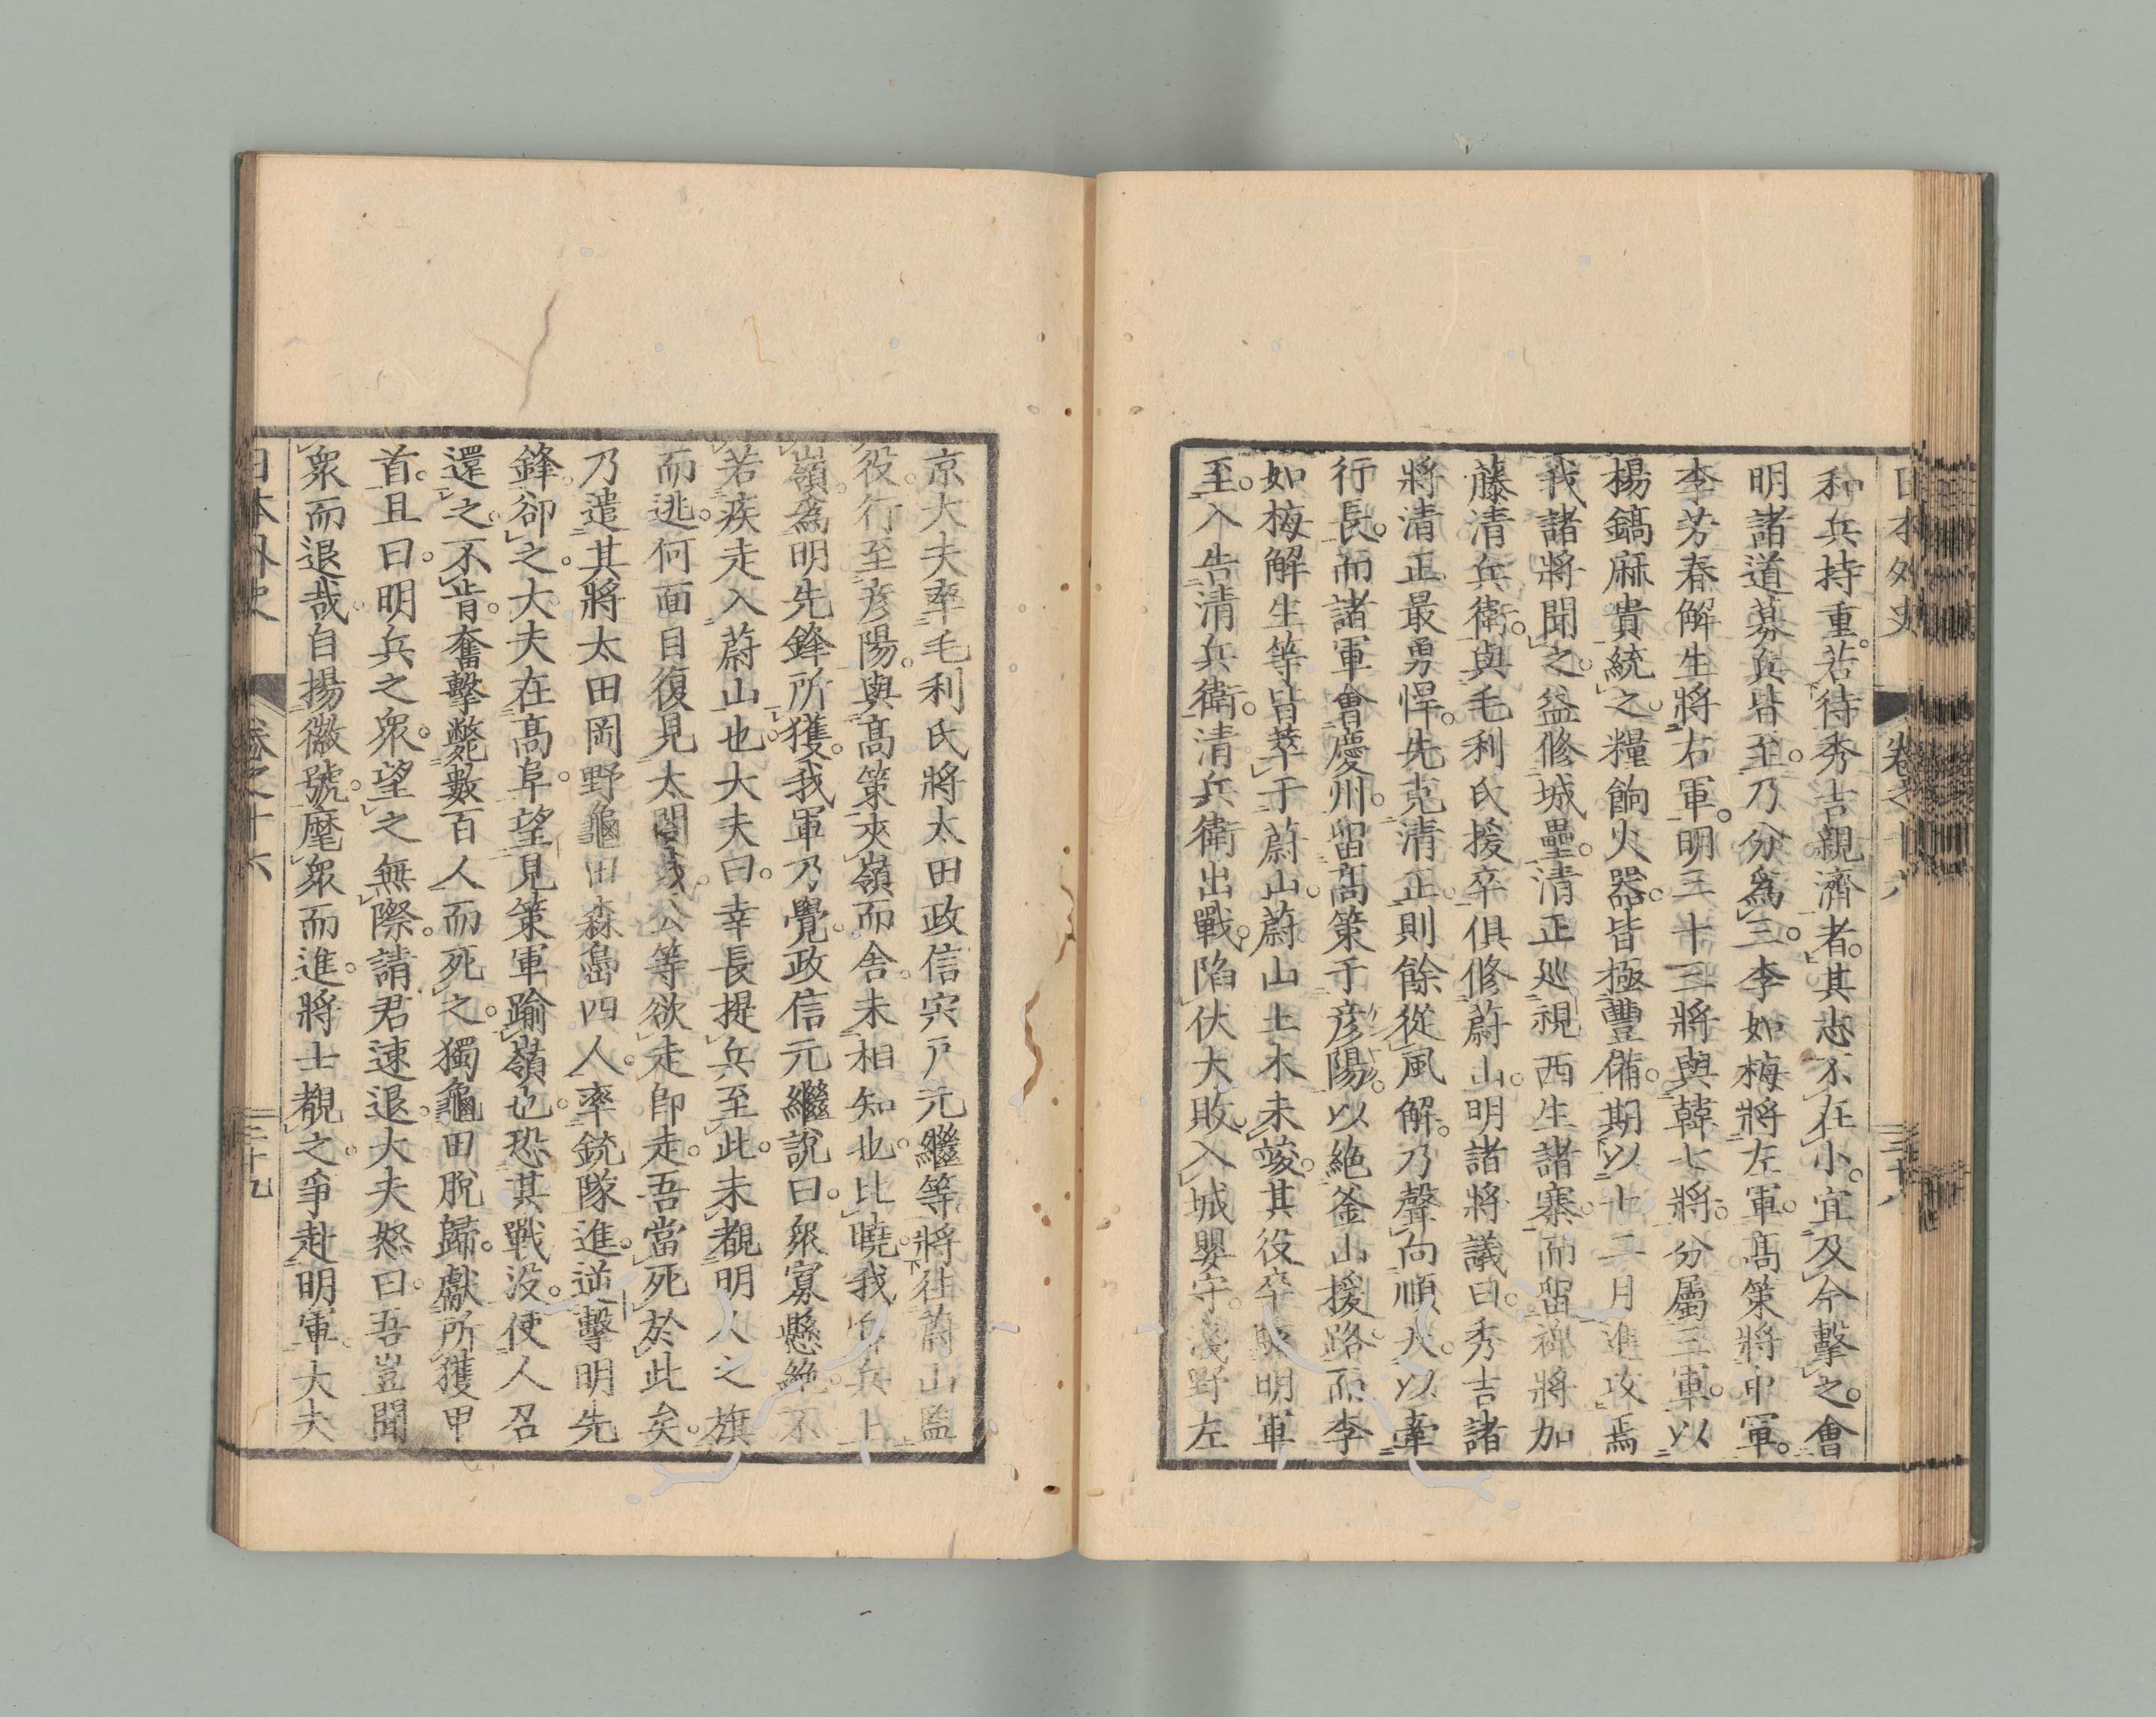 日本外史 卷之十六 三十八
和兵持重。若待秀吉親濟者。其志不在小。宜及今擊之。會
明諸道募兵皆至。乃分爲三。李如梅將左軍。高策將中軍。
李芳春解生將右軍。明三十三將與韓七將。分屬三軍。以
楊鎬麻貴統之。糧餉火器。皆極豐備。期以十二月進攻焉
我諸將聞之。益修城壘。清正巡視西生諸寨。而留裨將加
藤清兵衛。與毛利氏援卒俱修蔚山。明諸將議曰。秀吉諸
將清正最勇悍。先克清正。則餘從風解。乃聲向順天。以牽
行長。而諸軍會慶州。留高策于彦陽。以絶釜山援路。而李
如梅解生等皆萃于蔚山。蔚山土木未竣。其役卒驟明軍
至。入告清兵衛。清兵衛出戰。陷伏大敗。入城嬰守。淺野左
京大夫率毛利氏將太田政信宍戸元繼等。將往蔚山監
役。行至彦陽。與高策夾嶺而舍。未相知也。比曉。我兵上
嶺。爲明先鋒所獲。我軍乃覺。政信元繼說曰。衆寡懸絶。不
若疾走入蔚山也。大夫曰。幸長提兵至此。未覩明人之旗
而逃。何面目復見太閤哉。公等欲走即走。吾當死於此矣。
乃遣其將太田岡野龜田森島四人。率銃隊進。逆擊明先
鋒。卻之。大夫在高阜。望見策軍踰嶺也。恐其戰沒。使人召
還之。不肯。奮擊斃數百人而死之。獨龜田脫歸。獻所獲甲
首。且曰。明兵之衆。望之無際。請君速退。大夫怒曰。吾豈聞
衆而退哉。自揚徽號。麾衆而進。將士覩之。爭赴明軍。大夫
日本外史 卷之十六 三十九